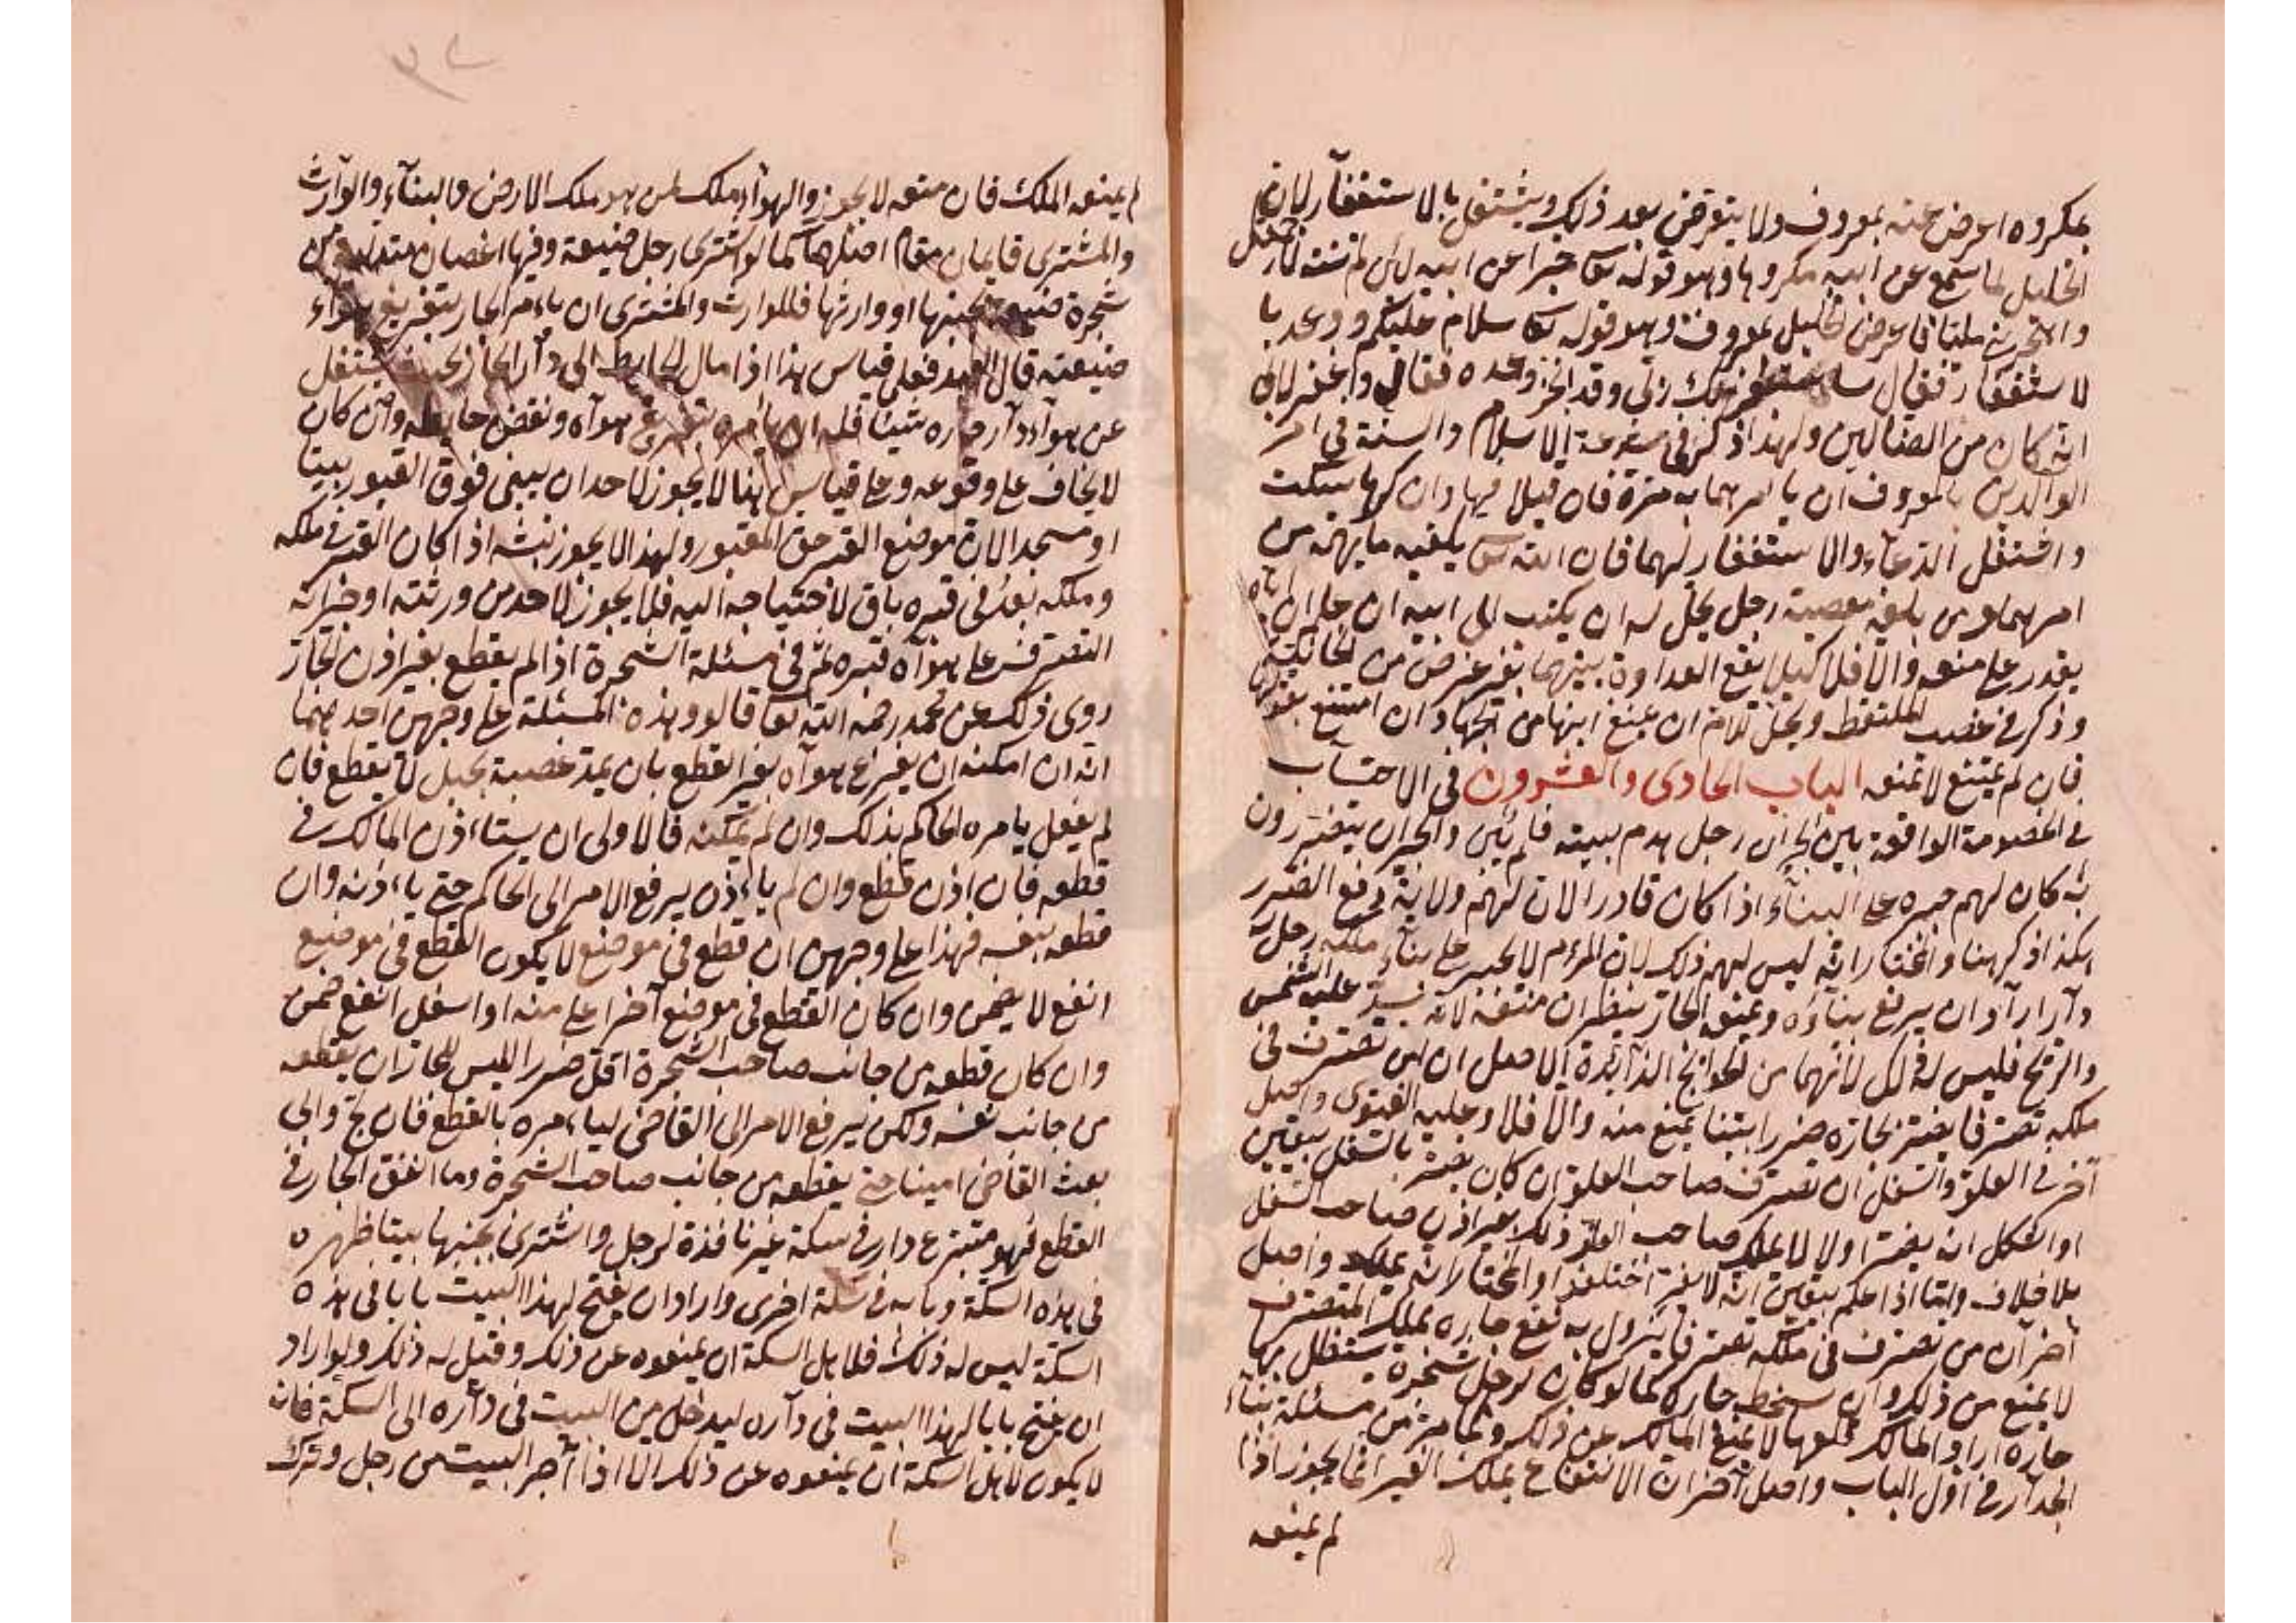 بمكروه اعرض عنه بمعروف ولا يتعرض بعد ذلك ويشتغل بالاستغفار لان
الخليل لما سمع عن ابيه مكروها وهو قوله تعا خبرا عن ابيه لئن لم تنته لارجمنك
واهجرني مليا فاعرض الخليل بمعروف وهو قوله تعا سلام عليكم ووعد با
لاستغفار فقال ساستغفر لك ربي وقد انجز وعده فقال واغفر لابي
انه كان من الضالين ولهذا ذكر في شرعة الاسلام والسنة في امر
الوالدين بالمعروف ان يامرهما به مرة فان قبلا فبها وان كرها سكت
واشتغل الدعاء والاستغفار لهما فان الله تعا يكفيه ما يهمه من
امرهما وبلغه معصية رجل يحل له ان يكتب الى ابيه ان علم ان اباه
يقدر على منعه والا فلا كيلا يقع العداوة بينهما بغير غرض من
وذكر في غصب الملتقط ويحل للام ان يمنع ابنها من الجهاد وان امتنع بقولها
فان لم يمتنع لا تمنعه الباب الحادى والعشرون في الاحتساب
في الخصومة الواقعة بين الجيران رجل هدم بيته فلم يبن والجيران يتضررون
به كان لهم جبره على البناء اذا كان قادرا لان لهم ولاية دفع الضرر
هكذا ذكر هنا والمختار انه ليس لهم ذلك لان المرء لا يجبر على بناء ملكه رجل له
دار اراد ان يرفع بناؤه ويمنعه الجار ينظر ان منعه لانه يسد عليه الشمس
والريح فليس له ذلك لانهما من الحوائج الزائدة الاصل ان من تصرف في
ملكه تصرفا يضر بجاره ضررا بينا يمنع منه والا فلا وعليه الفتوى واصل
آخر في العلو والسفل ان تصرف صاحب العلو ان كان يضر بالسفل بيقين
او اشكل انه يضر او لا لا يملك صاحب العلو ذلك بغير اذن صاحب السفل
بلا خلاف واما اذا علم بيقين انه لا يضر اختلفوا والمختار انه يملك واصل
آخر ان من تصرف في ملكه تصرفا يزول به نفع جاره بملك المتصرف
لا يمنع من ذلك وان سخط جاره كما لو كان لرجل شجرة يستظل بها
جاره اراد المالك قلعها لا يمنع المالك عن ذلك وكما مر من مسئلة بناء
الجدار في اول الباب واصل آخر ان الانتفاع بملك الغير انما يجوز اذا
لم يمنعه
لم يمنعه الملك فان منعه لا يجوز والهواء ملك لمن هو ملك الارض والبناء والوارث
والمشترى قايمان مقام اصلهما كما لو اشترى رجل ضيعة وفيها اغصان متدلية من
شجرة ضيعة بجنبها او وارثها فللوارث والمشترى ان يامر الجار بتفريغ هواء
ضيعته قال العبد فعلى قياس هذا اذا مال الحايط الى دار الجار بحيث يشغل
عن هواء دار جاره شيئا فله ان يامره بتفريغ هواه ونقض حايطه وان كان
لا يخاف على وقوعه وعلى قياس هنا لا يجوز لاحد ان يبنى فوق القبور بيتا
او مسجدا لان موضع القبر حق المقبور ولهذا لا يجوز نبشه اذا كان القبر في ملكه
وملكه بعد في قبره باق لاحتياجه اليه فلا يجوز لاحد من ورثته او جيرانه
التصرف على هواه قبره ثم في مسئلة الشجرة اذا لم يقطع بغير اذن الجار
روى ذلك عن محمد رحمه الله تعا قالو وهذه المسئلة على وجهين احدهما
انه ان امكنه ان يفرغ هواه بغير القطع بان يمد غصبة بحبل لا يقطع فان
لم يفعل يامره الحاكم بذلك وان لم يمكنه فالاولى ان يستاءذن المالك في
قطعه فان اذن قطع وان لم ياءذن يرفع الامر الى الحاكم حتى ياءذنه وان
قطعه بنفسه فهذا على وجهين ان قطع في موضع لا يكون القطع في موضع
انفع لا يضمن وان كان القطع في موضع آخر اعلى منه او اسفل انفع ضمن
وان كان قطعه من جانب صاحب الشجرة اقل ضررا ليس للجار ان يقطعه
من جانب نفسه ولكن يرفع الامر الى القاضى لياءمره بالقطع فان لج وابى
بعث القاضى امينا حتى يقطعه من جانب صاحب الشجرة وما انفق الجار في
القطع فهو متبرع دار في سكة غير نافذة لرجل واشترى بجنبها بيتا ظهره
في هذه السكة وبابه في سكة اخرى واراد ان يفتح لهذا البيت بابا في هذه
السكة ليس له ذلك فلاهل السكة ان يمنعوه عن ذلك وقيل له ذلك ولو اراد
ان يفتح بابا لهذا البيت في داره ليدخل من البيت في داره الى السكة فانه
لا يكون لاهل السكة ان يمنعوه عن ذلك الا اذا آجر البيت من رجل وترك